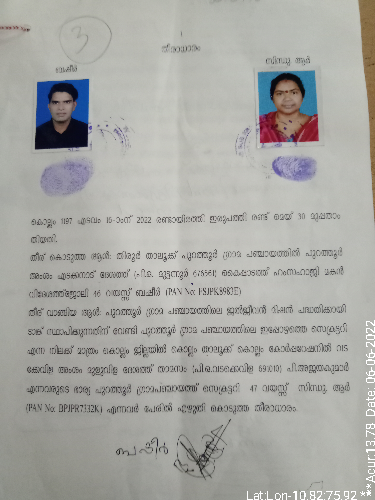 3
1
തീരാധാരം
ബഷീർ
സിന്ധു ആർ
കൊല്ലം 1197 എടവം 16-ാംന് 2022 രണ്ടായിരത്തി ഇരുപത്തി രണ്ട് മെയ് 30 മുപ്പതാം
തിയതി.
തീര് കൊടുത്ത ആൾ: തിരൂർ താലൂക്ക് പുറത്തൂർ ഗ്രാമ പഞ്ചായത്തിൽ പുറത്തൂർ
അംശം എടക്കനാട് ദേശത്ത് (പി.ഒ. മുട്ടന്നൂർ 676561) കൈപ്പാടത്ത് ഹംസഹാജി മകൻ
വിദേശത്ത്ജോലി 46 വയസ്സ് ബഷീർ (PAN No: FSJPK8983E)
തീര് വാങ്ങിയ ആൾ: പുറത്തൂർ ഗ്രാമ പഞ്ചായത്തിലെ ജൽജീവൻ മിഷൻ പദ്ധതിക്കായി
ടാങ്ക് സ്ഥാപിക്കുന്നതിന് വേണ്ടി പുറത്തൂർ ഗ്രാമ പഞ്ചായത്തിലെ ഇപ്പോഴത്തെ സെക്രട്ടറി
എന്ന നിലക്ക് മാത്രം കൊല്ലം ജില്ലയിൽ കൊല്ലം താലൂക്ക് കൊല്ലം കോർപ്പറേഷനിൽ വട
ക്കേവിള അംശം മുള്ളുവിള ദേശത്ത് താമസം (പി.ഒ.വടക്കേവിള 691010) പി.അജയകുമാർ
എന്നവരുടെ ഭാര്യ പുറത്തൂർ ഗ്രാമപഞ്ചായത്ത് സെക്രട്ടറി 47 വയസ്സ് സിന്ധു. ആർ
(PAN No: BPJPR7332K) എന്നവർ പേരിൽ എഴുതി കൊടുത്ത തീരാധാരം.
ബഷീർ
Lat:Lon-10.82:75.92 ***
Acur:13.78 Date: 06-06-2022